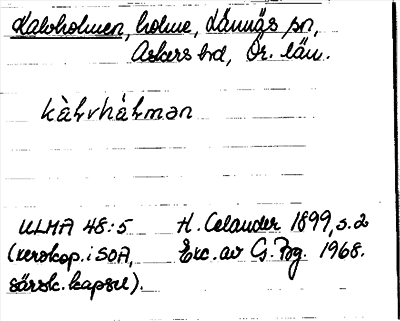 Kalvholmen, holme, Lännäs sn,
Askers hd, Ör. län.
kàlvhál̀mən
ULMA 48:5 H. Celander 1899, s. 2
(xerokop. i SOA, Exc. av G. Bg. 1968.
särsk. kapsel).